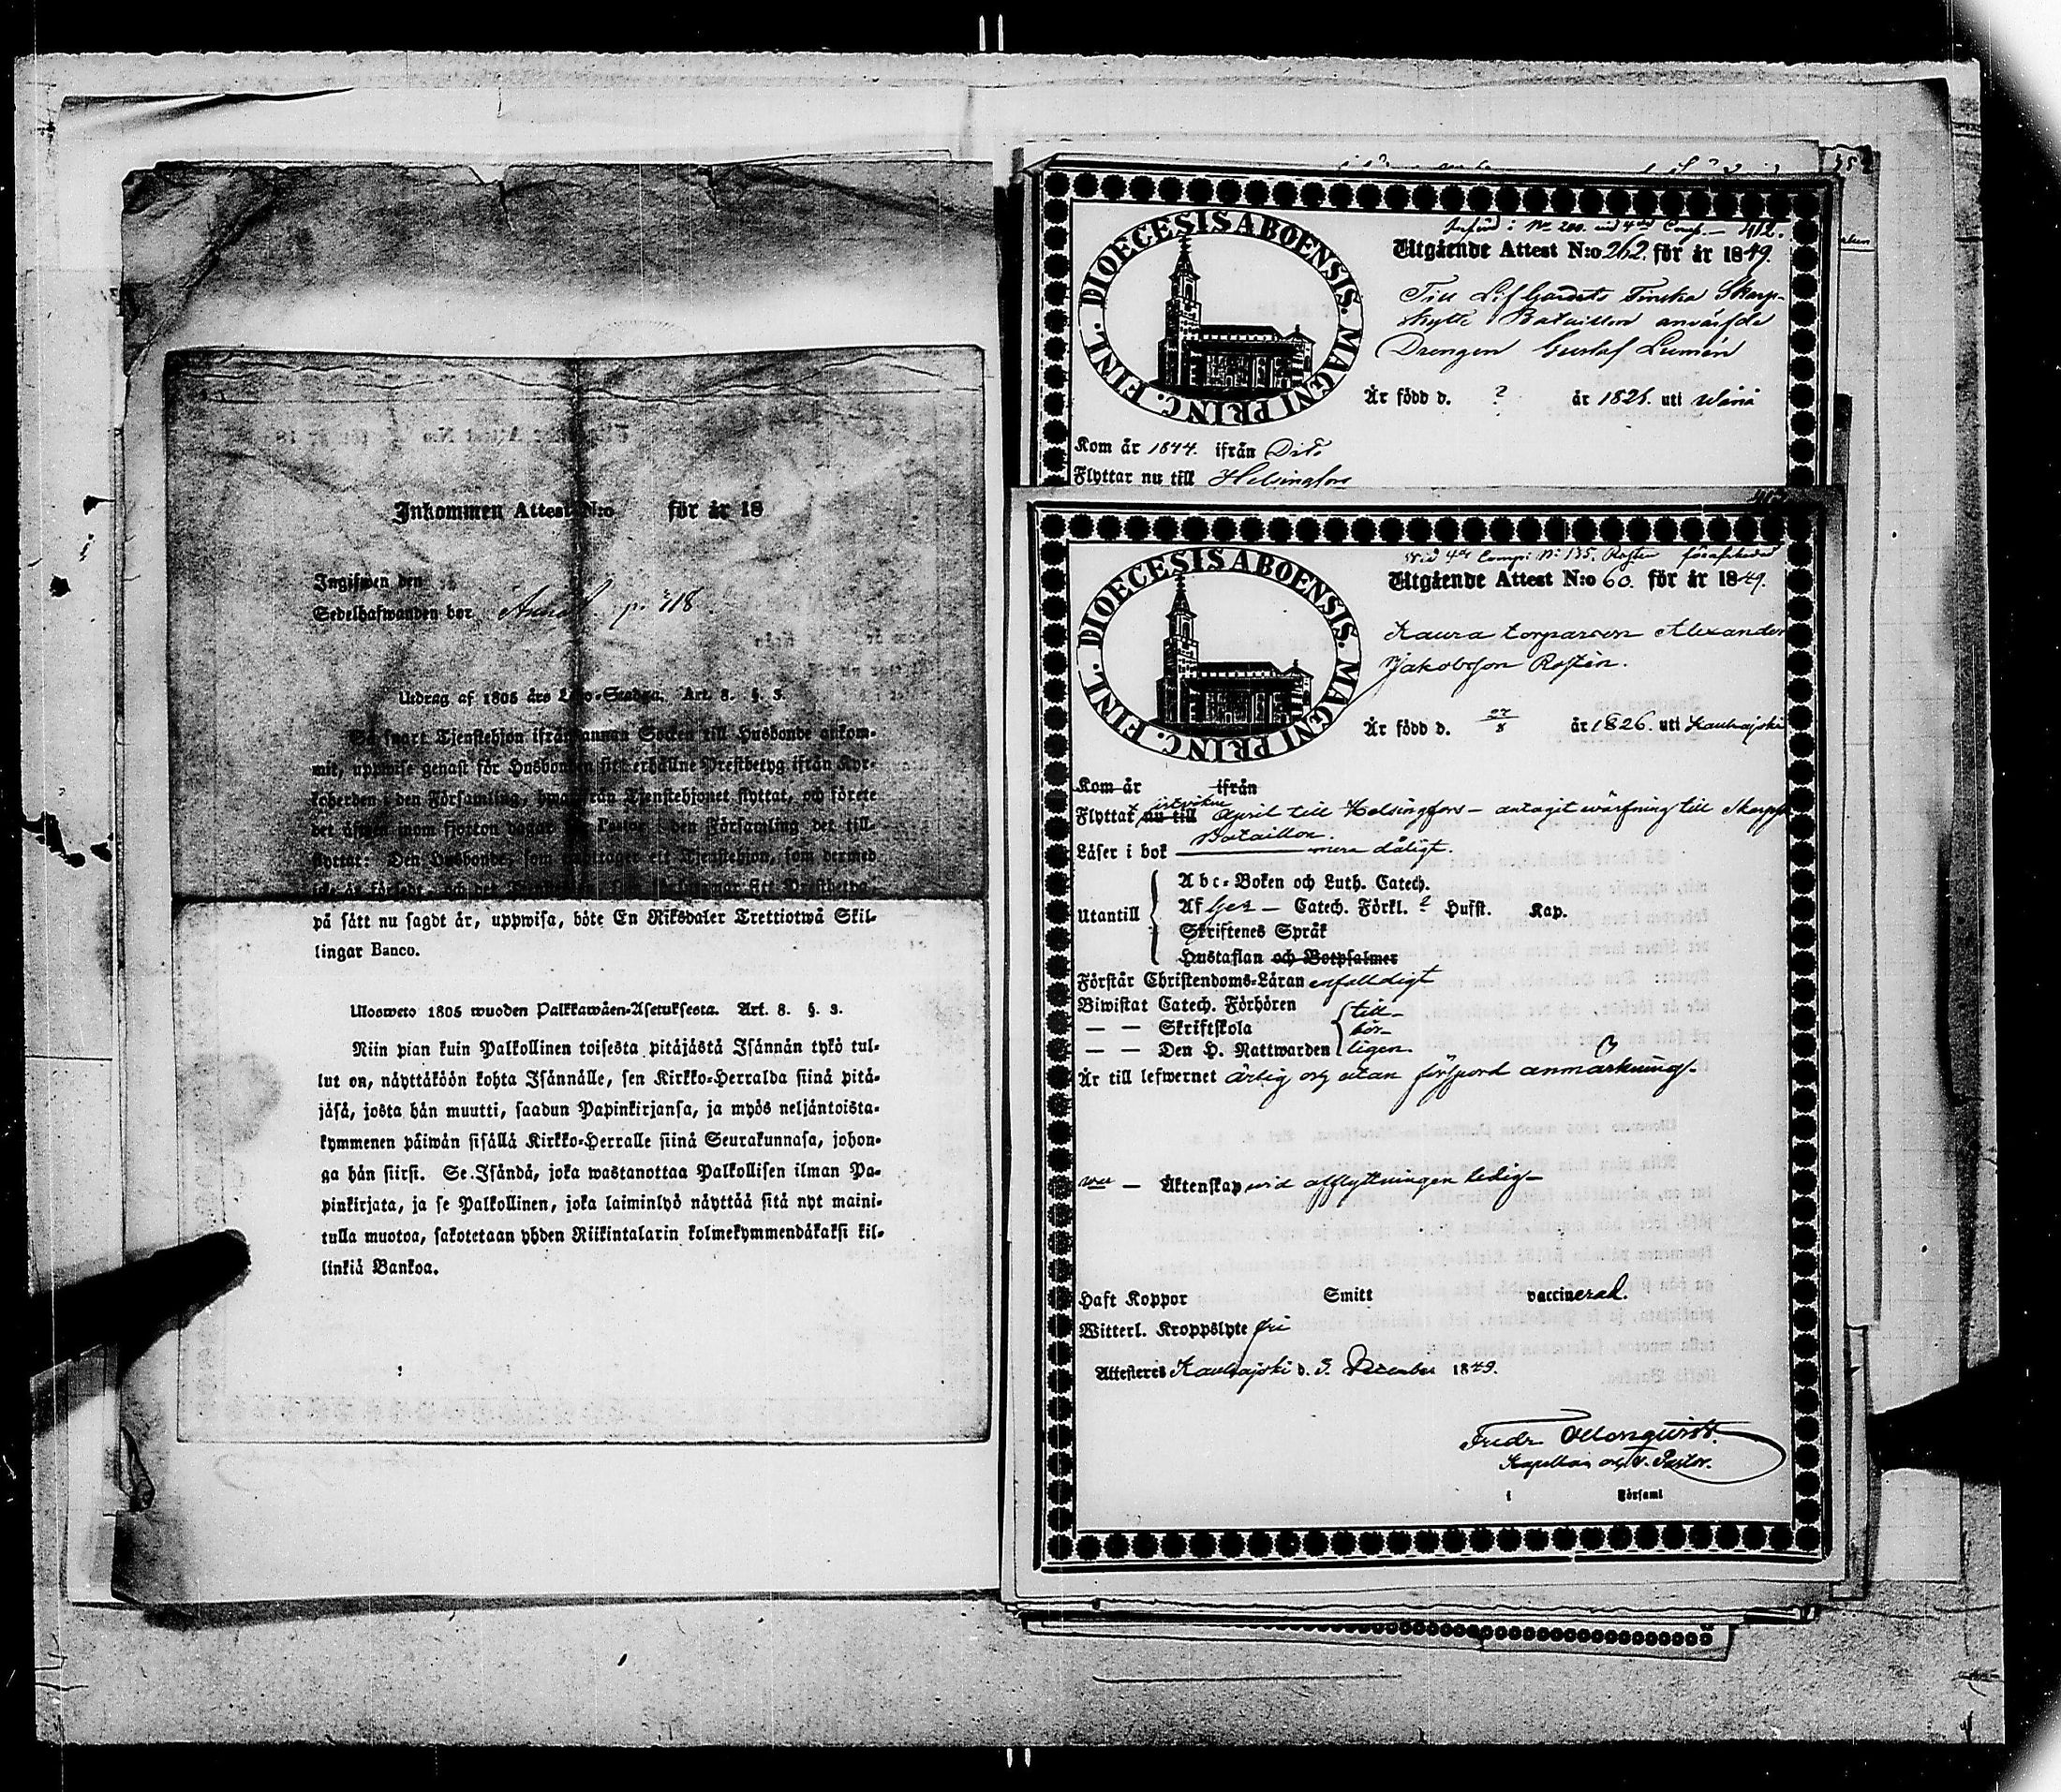 Inkommen Attest N:o för år 18
Ingifwen den
Sedelhafwanden bor p. 418
Utdrag af 1805 års Lego-Stadga. Art. 8. §. 3.
Så snart Tjenstehjon ifrån annan Socken till Husbonde ankom-
mit, uppwise genast för Husbonden sitt erhållne Prestbetyg ifrån Kyr-
koherden i den Församling, hwarifrån Tjenstehjonet flyttat, och förete
det äfwen inom fjorton dagar för Pastor i den Församling det till-
flyttat: Den Husbonde, som emottager ett Tjenstehjon, som dermed
icke är försedt, och det Tjenstehjon, som försummar sitt Prestbetyg,
på sätt nu sagdt är, uppwisa, böte En Riksdaler Trettiotwå Skil-
lingar Banco.
Ulosweto 1805 wuoden Palkkawäen-Asetuksesta. Art. 8. §. 3.
Niin pian kuin Palkollinen toisesta pitäjästä Isännän tykö tul-
lut on, näyttäköön kohta Isännälle, sen Kirkko-Herralda siinä pitä-
jäsä, josta hän muutti, saadun Papinkirjansa, ja myös neljäntoista-
kymmenen päiwän sisällä Kirkko-Herralle siinä Seurakunnasa, johon-
ga hän siirsi. Se Isändä, joka wastanottaa Palkollisen ilman Pa-
pinkirjata, ja se Palkollinen, joka laiminlyö näyttää sitä nyt maini-
tulla muotoa, sakotetaan yhden Riikintalarin kolmekymmendäkaksi kil-
linkiä Bankoa.
DIOECESIS ABOENSIS. MAGNI PRINC. FINL.
N:o 200. vid 4de Comp. 412.
Utgående Attest N:o 262. för år 1849.
Till Lif Gardets Finska Skarp-
skytte Bataillon anvärfde
Drengen Gustaf Lumén
Är född d. ? år 1826. uti
Kom år 1844. ifrån Dito
Flyttar nu till Helsingfors
DIOECESIS ABOENSIS. MAGNI PRINC. FINL.
Vid 4de Comp: N: 135. Rosten
Utgående Attest N:o 60. för år 1849.
torparson Alexander
Jakobsson Rostén.
Är född d. 27/8 år 1826. uti Kauhajoki
Kom år ifrån
Flyttat nu till April till Helsingfors – antagit värfning till Skarpsk
Bataillon.
Läser i bok mera dåligt.
Utantill
Abc-Boken och Luth. Catech.
Af Catech. Förkl. ? Hufst. Kap.
Skriftenes Språk
Hustaflan och Botpsalmer
Förstår Christendoms-Läran enfaldigt
Biwistat Catech. Förhören till-
— — Skriftskola bör-
— — Den H. Nattwarden ligen.
Är till lefwernet ärlig och utan förspord anmärkning.
var – Äktenskap vid afflyttningen ledig –
Haft Koppor Smitt vaccinerad.
Witterl. Kroppslyte fri
Attesteres Kauhajoki d. 3. December 1849.
Fredr.
Kapellan och v. Pastor.
i Församl